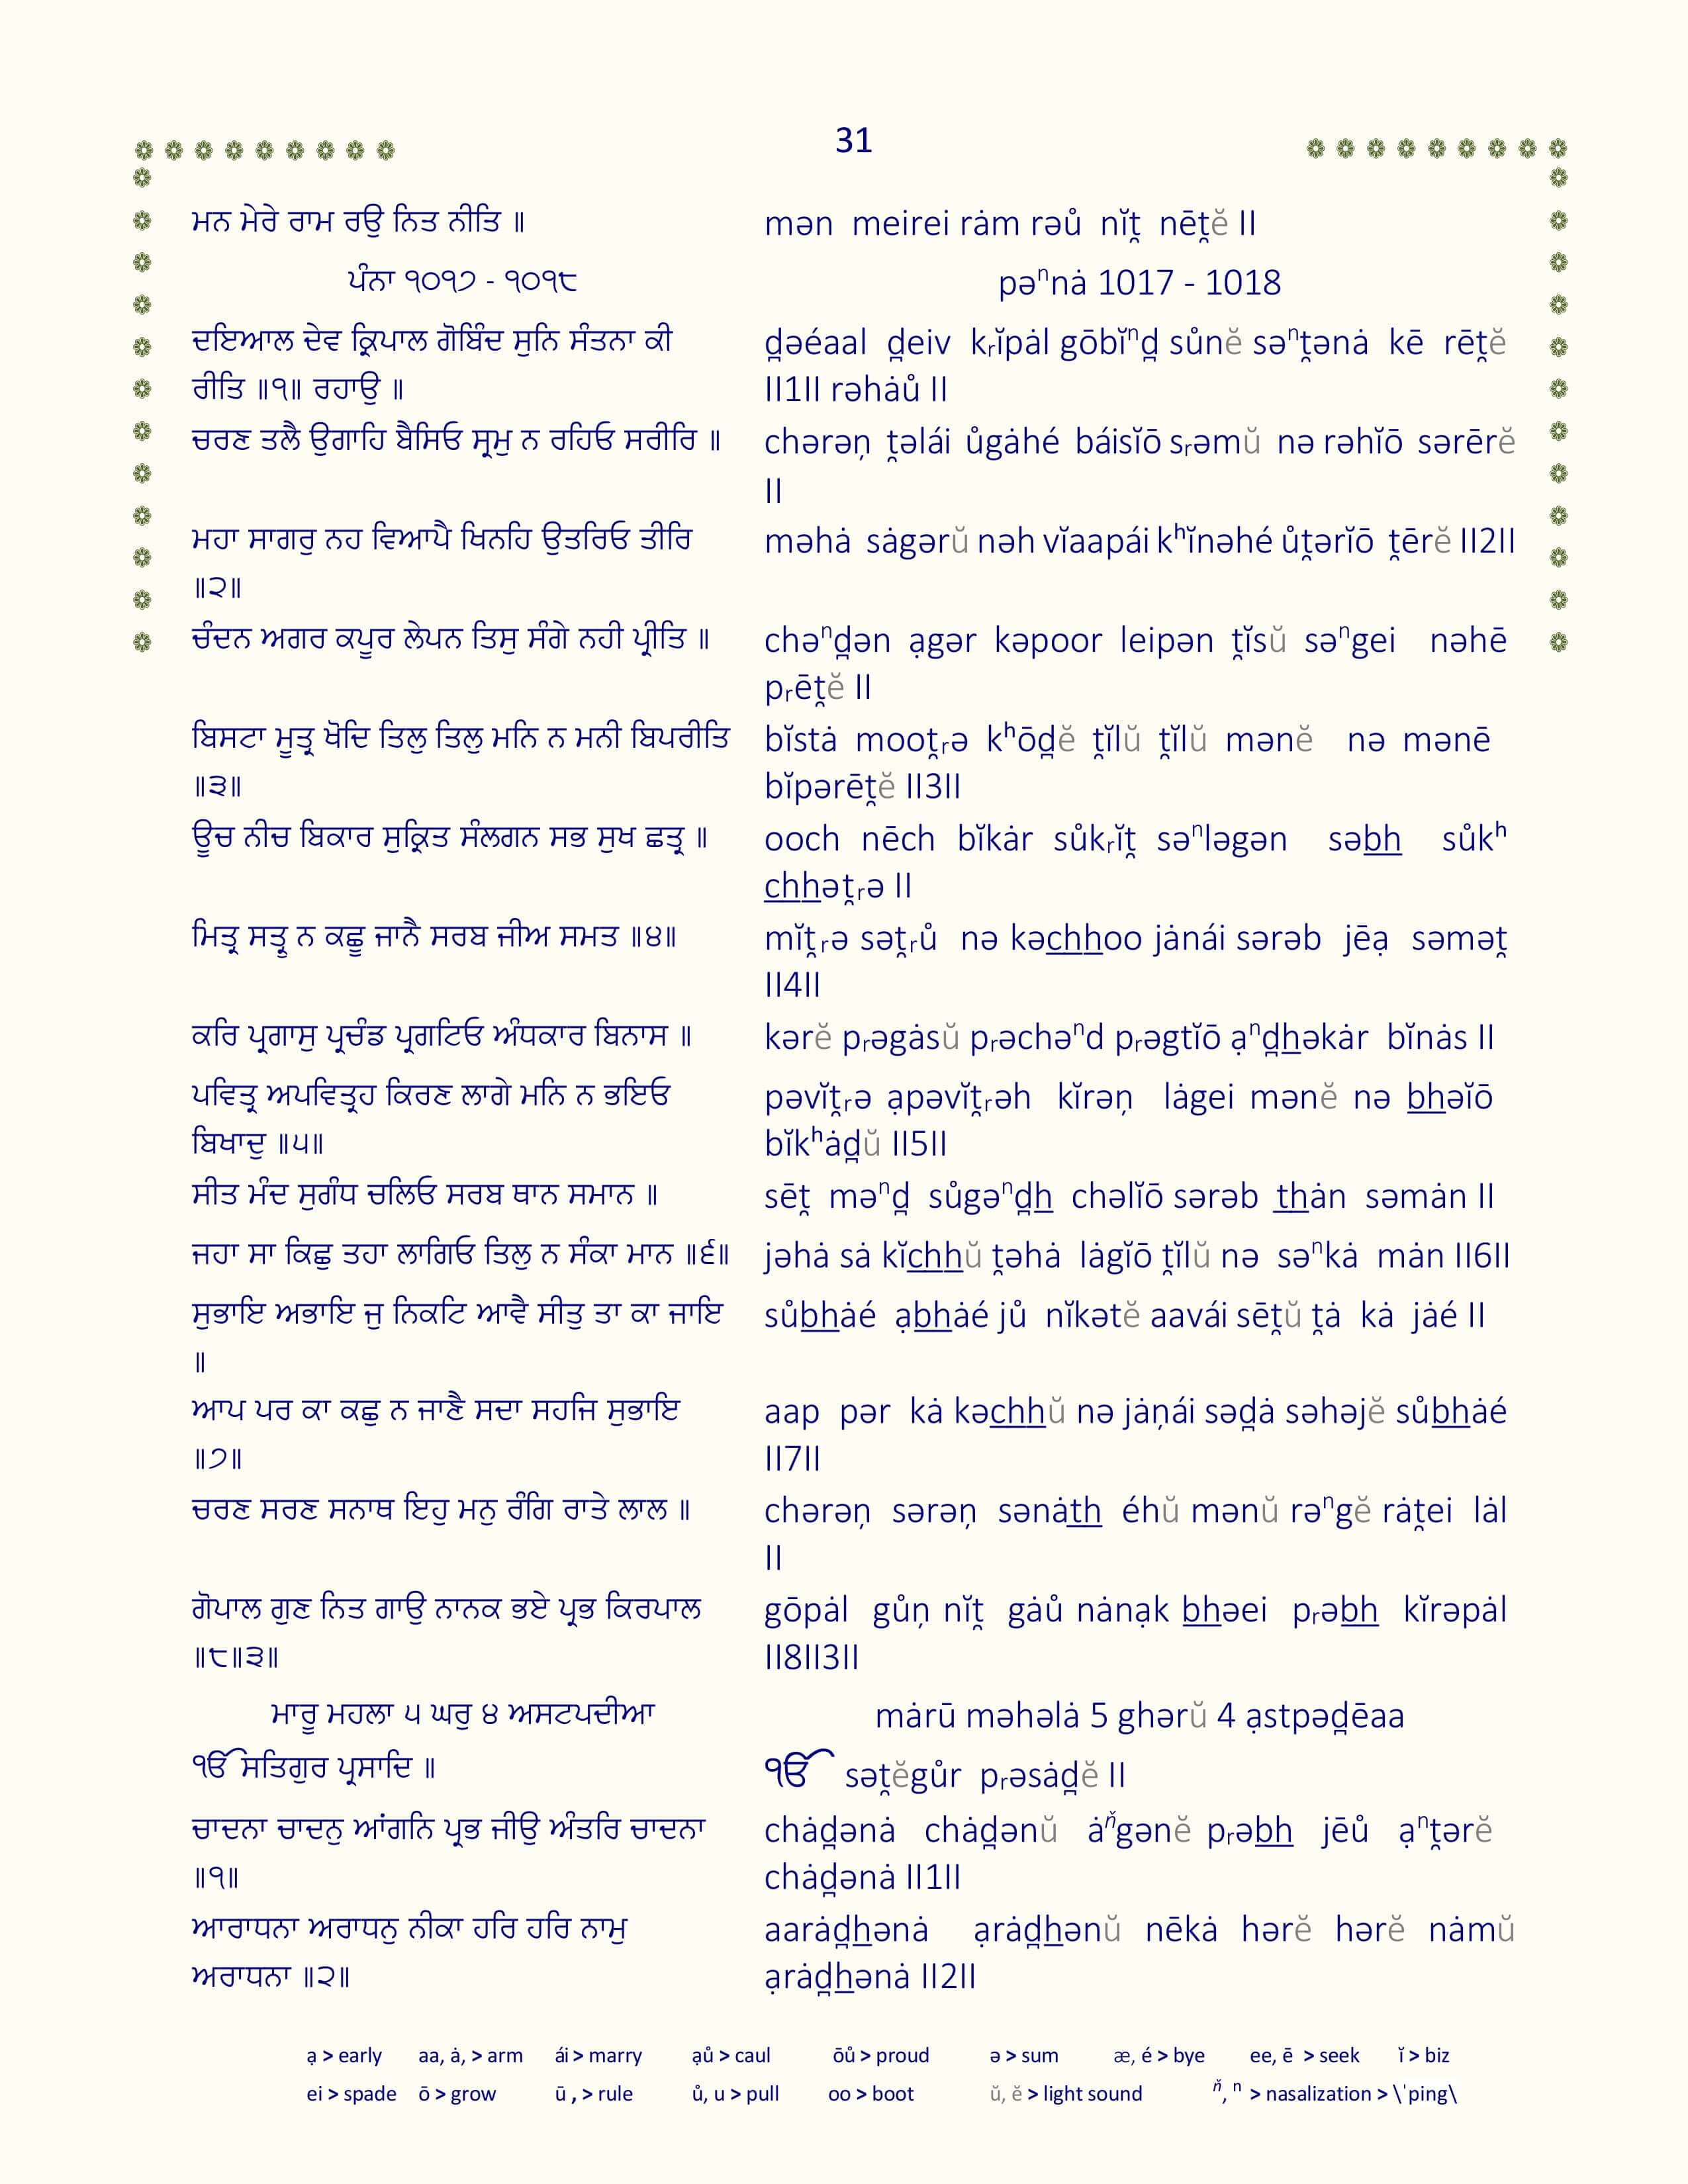 31
ਮਨ ਮੇਰੇ ਰਾਮ ਰਉ ਨਿਤ ਨੀਤਿ ॥
mən meirei rȧm rəů nĭt̪ nēt̪ĕ II
ਪੰਨਾ ੧੦੧੭ - ੧੦੧੮
pəⁿnȧ 1017 - 1018
ਦਇਆਲ ਦੇਵ ਕ੍ਰਿਪਾਲ ਗੋਬਿੰਦ ਸੁਨਿ ਸੰਤਨਾ ਕੀ
ਰੀਤਿ ॥੧॥ ਰਹਾਉ ॥
d̪əéaal d̪eiv kᵣĭpȧl gōbĭⁿd̪ sůnĕ səⁿt̪ənȧ kē rēt̪ĕ
II1II rəhȧů II
ਚਰਣ ਤਲੈ ਉਗਾਹਿ ਬੈਸਿਓ ਸ੍ਰਮੁ ਨ ਰਹਿਓ ਸਰੀਰਿ ॥
chərəṇ t̪əlái ůgȧhé báisĭō sᵣəmŭ nə rəhĭō sərērĕ
II
ਮਹਾ ਸਾਗਰੁ ਨਹ ਵਿਆਪੈ ਖਿਨਹਿ ਉਤਰਿਓ ਤੀਰਿ
॥੨॥
məhȧ sȧgərŭ nəh vĭaapái kʰĭnəhé ůt̪ərĭō t̪ērĕ II2II
ਚੰਦਨ ਅਗਰ ਕਪੂਰ ਲੇਪਨ ਤਿਸੁ ਸੰਗੇ ਨਹੀ ਪ੍ਰੀਤਿ ॥
chəⁿd̪ən ạgər kəpoor leipən t̪ĭsŭ səⁿgei nəhē
pᵣēt̪ĕ II
ਬਿਸਟਾ ਮੂਤ੍ਰ ਖੋਦਿ ਤਿਲੁ ਤਿਲੁ ਮਨਿ ਨ ਮਨੀ ਬਿਪਰੀਤਿ
॥੩॥
bĭstȧ moot̪ᵣə kʰōd̪ĕ t̪ĭlŭ t̪ĭlŭ mənĕ nə mənē
bĭpərēt̪ĕ II3II
ਊਚ ਨੀਚ ਬਿਕਾਰ ਸੁਕ੍ਰਿਤ ਸੰਲਗਨ ਸਭ ਸੁਖ ਛਤ੍ਰ ॥
ooch nēch bĭkȧr sůkᵣĭt̪ səⁿləgən səbh sůkʰ
chhət̪ᵣə II
ਮਿਤ੍ਰ ਸਤ੍ਰੁ ਨ ਕਛੂ ਜਾਨੈ ਸਰਬ ਜੀਅ ਸਮਤ ॥੪॥
mĭt̪ᵣə sət̪ᵣů nə kəchhoo jȧnái sərəb jēạ səmət̪
II4II
ਕਰਿ ਪ੍ਰਗਾਸੁ ਪ੍ਰਚੰਡ ਪ੍ਰਗਟਿਓ ਅੰਧਕਾਰ ਬਿਨਾਸ ॥
kərĕ pᵣəgȧsŭ pᵣəchəⁿd pᵣəgtĭō ạⁿd̪həkȧr bĭnȧs II
ਪਵਿਤ੍ਰ ਅਪਵਿਤ੍ਰਹ ਕਿਰਣ ਲਾਗੇ ਮਨਿ ਨ ਭਇਓ
ਬਿਖਾਦੁ ॥੫॥
pəvĭt̪ᵣə ạpəvĭt̪ᵣəh kĭrəṇ lȧgei mənĕ nə bhəĭō
bĭkʰȧd̪ŭ II5II
ਸੀਤ ਮੰਦ ਸੁਗੰਧ ਚਲਿਓ ਸਰਬ ਥਾਨ ਸਮਾਨ ॥
sēt̪ məⁿd̪ sůgəⁿd̪h chəlĭō sərəb thȧn səmȧn II
ਜਹਾ ਸਾ ਕਿਛੁ ਤਹਾ ਲਾਗਿਓ ਤਿਲੁ ਨ ਸੰਕਾ ਮਾਨ ॥੬॥
jəhȧ sȧ kĭchhŭ t̪əhȧ lȧgĭō t̪ĭlŭ nə səⁿkȧ mȧn II6II
ਸੁਭਾਇ ਅਭਾਇ ਜੁ ਨਿਕਟਿ ਆਵੈ ਸੀਤੁ ਤਾ ਕਾ ਜਾਇ
॥
sůbhȧé ạbhȧé jů nĭkətĕ aavái sēt̪ŭ t̪ȧ kȧ jȧé II
ਆਪ ਪਰ ਕਾ ਕਛੁ ਨ ਜਾਣੈ ਸਦਾ ਸਹਜਿ ਸੁਭਾਇ
॥੭॥
aap pər kȧ kəchhŭ nə jȧṇái səd̪ȧ səhəjĕ sůbhȧé
II7II
ਚਰਣ ਸਰਣ ਸਨਾਥ ਇਹੁ ਮਨੁ ਰੰਗਿ ਰਾਤੇ ਲਾਲ ॥
chərəṇ sərəṇ sənȧth éhŭ mənŭ rəⁿgĕ rȧt̪ei lȧl
II
ਗੋਪਾਲ ਗੁਣ ਨਿਤ ਗਾਉ ਨਾਨਕ ਭਏ ਪ੍ਰਭ ਕਿਰਪਾਲ
॥੮॥੩॥
gōpȧl gůṇ nĭt̪ gȧů nȧnạk bhəei pᵣəbh kĭrəpȧl
II8II3II
ਮਾਰੂ ਮਹਲਾ ੫ ਘਰੁ ੪ ਅਸਟਪਦੀਆ
mȧrū məhəlȧ 5 ghərŭ 4 ạstpəd̪ēaa
ੴ ਸਤਿਗੁਰ ਪ੍ਰਸਾਦਿ ॥
ੴ sət̪ĕgůr pᵣəsȧd̪ĕ II
ਚਾਦਨਾ ਚਾਦਨੁ ਆਂਗਨਿ ਪ੍ਰਭ ਜੀਉ ਅੰਤਰਿ ਚਾਦਨਾ
॥੧॥
chȧd̪ənȧ chȧd̪ənŭ ȧᵑ̌gənĕ pᵣəbh jēů ạⁿt̪ərĕ
chȧd̪ənȧ II1II
ਆਰਾਧਨਾ ਅਰਾਧਨੁ ਨੀਕਾ ਹਰਿ ਹਰਿ ਨਾਮੁ
ਅਰਾਧਨਾ ॥੨॥
aarȧd̪hənȧ ạrȧd̪hənŭ nēkȧ hərĕ hərĕ nȧmŭ
ạrȧd̪hənȧ II2II
ạ > early aa, ȧ, > arm ái > marry ạů > caul ōů > proud ə > sum æ, é > bye ee, ē > seek ĭ > biz
ei > spade ō > grow ū , > rule ů, u > pull oo > boot ŭ, ĕ > light sound ň, ⁿ > nasalization > \ˈping\